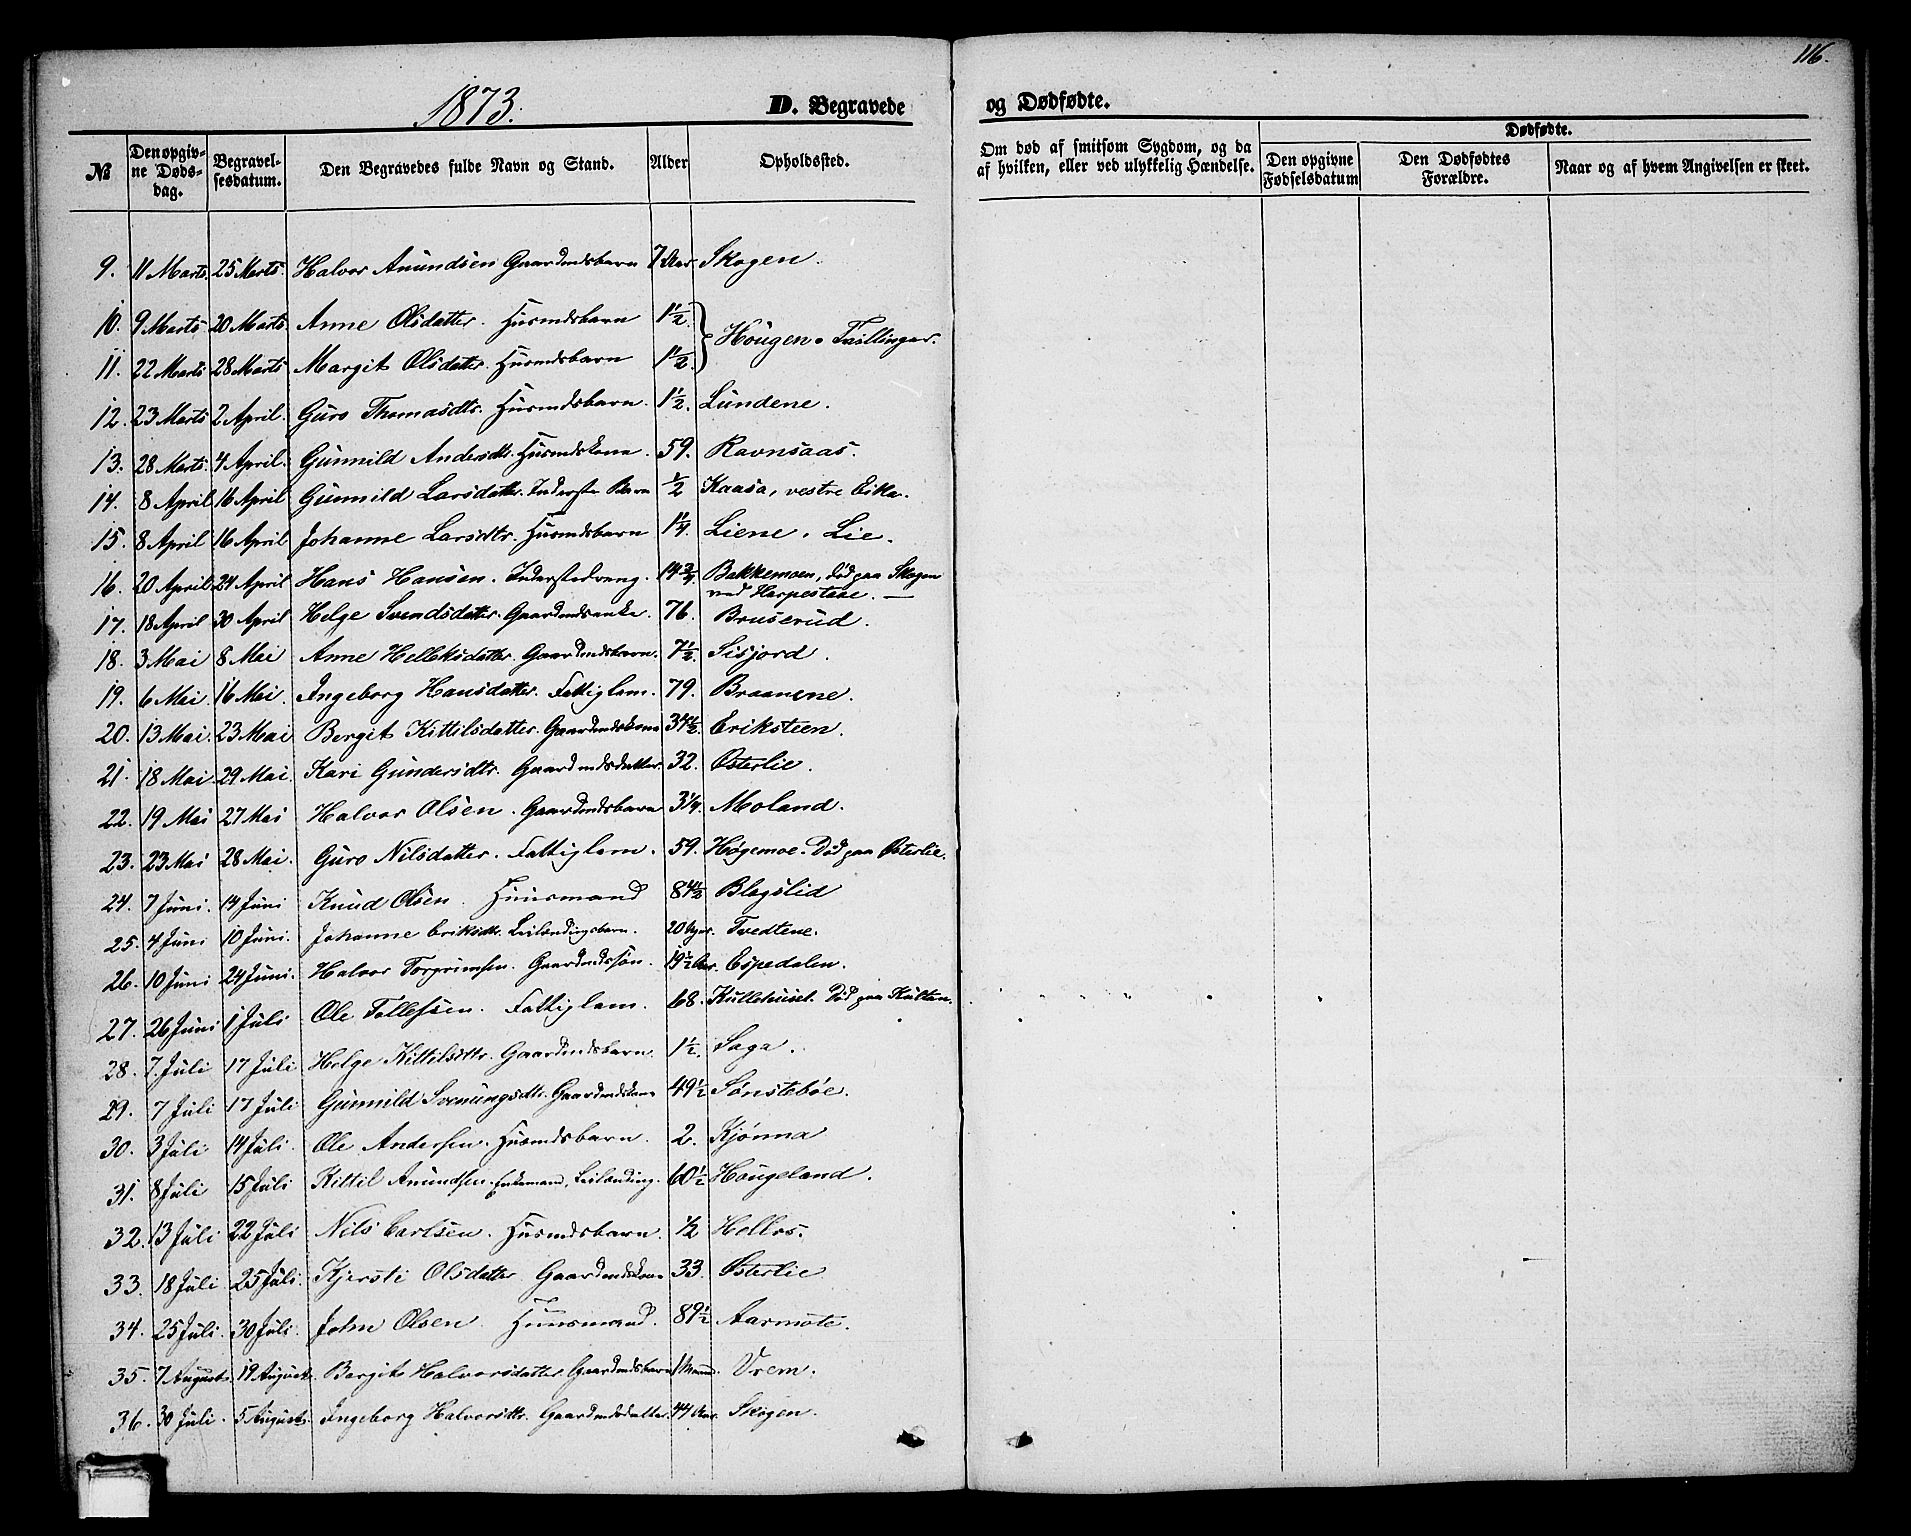 116.
1873.
D. Begravede og Dødfødte.
№ Den opgivne Dødsdag. Begravelsesdatum. Den Begravedes fulde Navn og Stand. Alder Opholdssted. Om død af smitsom Sygdom, og da af hvilken, eller ved ulykkelig Hændelse. Dødfødte. Den opgivne Fødselsdatum Den Dødfødtes Forældre. Naar og af hvem Angivelsen er skeet.
9. 11 Marts. 25 Marts. Halvor Anundsen Gaardmdsbarn 7 Aar. Skogen.
10. 9 Marts 20 Marts. Anne Olsdatter. Husmdsbarn 1½. Hougen. Tvillinger.
11. 22 Marts 28 Marts Margit Olsdatter. Husmdsbarn 1½.
12. 23 Marts 2 April. Guro Thomasdtr. Husmdsbarn. 1½. Lundene.
13. 28 Marts. 4 April. Gunnild Andersdtr. Husmdskone. 59. Ravnsaas.
14. 8 April 16 April Gunnild Larsdatter. Inderste Barn ½ Kaasa, vestre Eika.
15. 8 April 16 April Johanne Larsdtr. Husmdsbarn 1¼. Liene. Lie.
16. 20 April. 24 April Hans Hansen. Inderstedreng. 14¾. Bakkemoen, død paa Skogen
ved Harpestene. —
17. 18 April 30 April Helge Svendsdatter. Gaardmdsenke 76. Bruserud.
18. 3 Mai 8 Mai Anne Helleksdatter. Gaardmdsbarn. 7½. Sisjord.
19. 6 Mai. 16 Mai. Ingeborg Hansdatter. Fattiglem. 79. Braanene.
20. 13 Mai. 23 Mai Bergit Kittilsdatter. Gaardmdskone 34½. Eriksteen.
21. 18 Mai 29 Mai. Kari Gundersdtr. Gaardmdsdatter. 32. Østerlie.
22. 19 Mai 27 Mai Halvor Olsen. Gaardmdsbarn 3¼. Moland.
23. 23 Mai 28 Mai. Guro Nilsdatter. Fattiglem. 59. Høgemoe. Død paa Østerlie.
24. 7 Juni. 14 Juni Knud Olsen. Huusmand 84½ Blegslid
25. 4 Juni 10 Juni. Johanne Eriksdtr. Leilændingsbarn. 20 Uger. Tvedtene.
26. 10 Juni 24 Juni. Halvor Torgrimsen. Gaardmdssøn 19½ Aar. Espedalen.
27. 26 Juni 1 Juli Ole Tollefsen. Fattiglem. 68. Kullehuset. Død paa Kulten.
28. 7. Juli 17 Juli Helge Kittilsdtr. Gaardmdsbarn. 1½. Saga.
29. 7 Juli 17 Juli Gunnild Svenungsdtr. Gaardmdskone 49½ Sønstebøe.
30. 3 Juli 14 Juli. Ole Andersen. Husmdsbarn. 2. Kjønna
31. 8 Juli 15 Juli Kittil Anundsen. Enkemand, Leilænding. 60½ Hougeland.
32. 13 Juli 22 Juli Nils Carlsen. Husmdsbarn. ½ Hellos.
33. 18 Juli. 25 Juli. Kjersti Olsdatter. Gaardmdskone 33. Østerlie
34. 25 Juli. 30 Juli. John Olsen. Huusmand. 89½ Aarmote.
35. 7 August. 19 August. Bergit Halvorsdatter Gaardmdsbarn 1 Maaned. Vrem.
36. 30 Juli. 5 August. Ingeborg Halvorsdtr. Gaardmdsdatter. 44 Aar. Skogen.